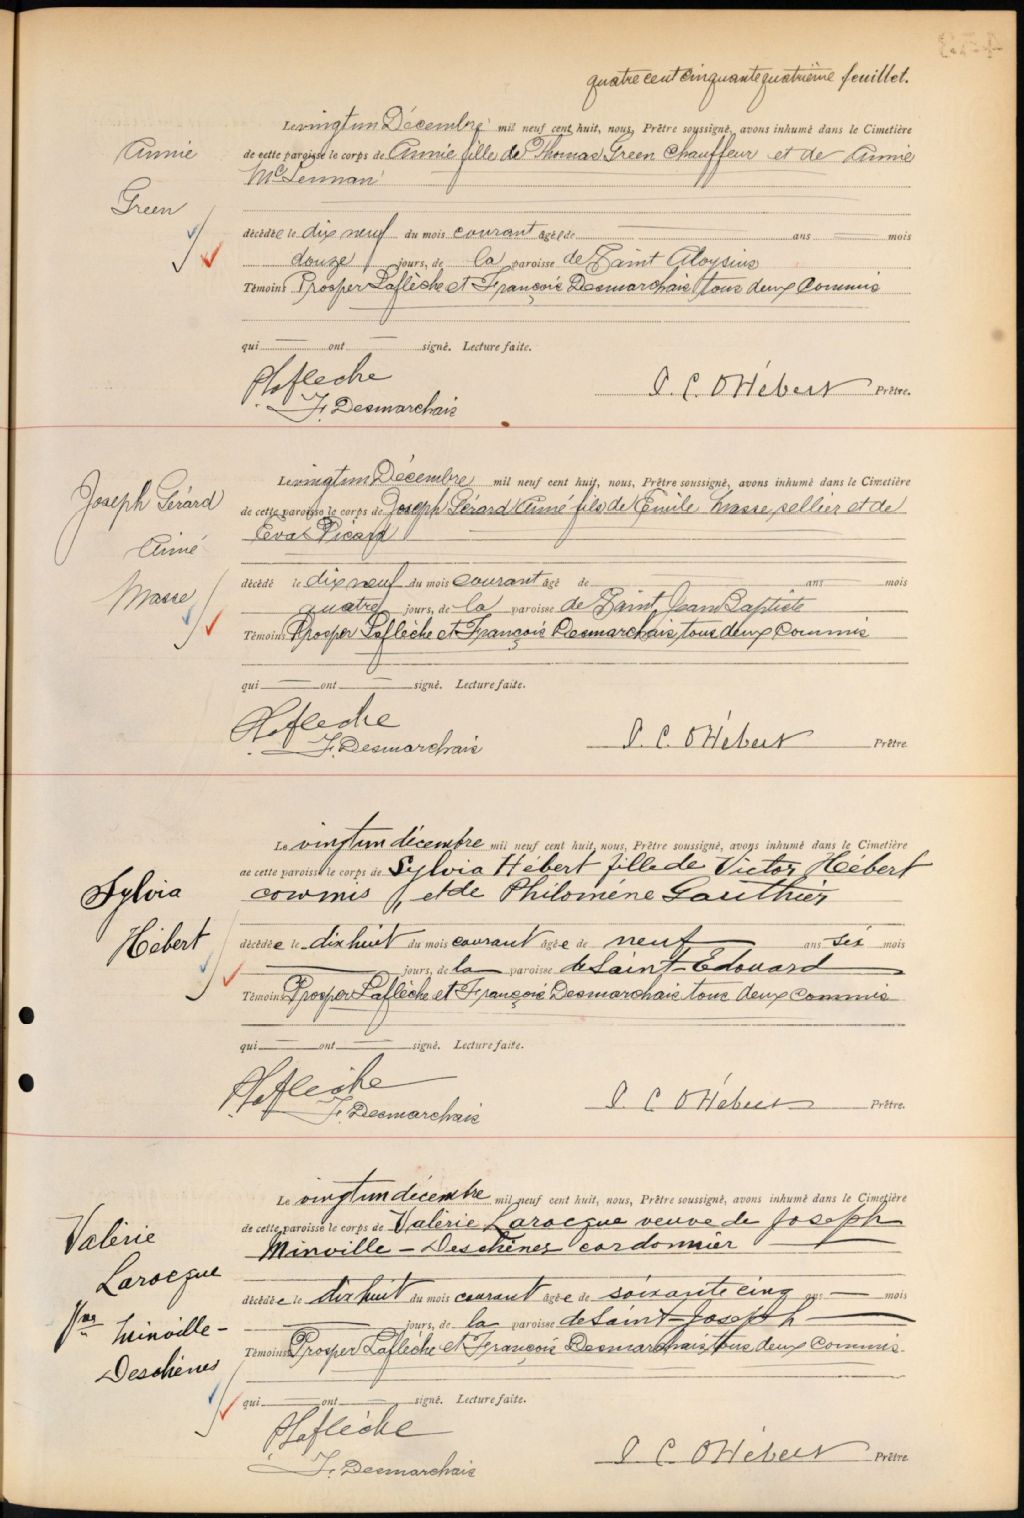 quatre cent cinquante quatrième feuillet.
Annie
Green
Le vingt un Décembre mil neuf cent huit, nous, Prêtre soussigné, avons inhumé dans le Cimetière
de cette paroisse le corps de Annie fille de Thomas Green Chauffeur et de Annie
McLennan
décédée le dix neuf du mois courant âgée de ans mois
douze jours, de la paroisse de Saint Aloysius
Témoins Prosper Laflèche et François Desmarchais tous deux Commis
qui ont signé. Lecture faite.
P Laflèche
F. Desmarchais
P. C. O Hébert Prêtre.
Joseph Gérard
Aimé
Masse
Le vingt un Décembre mil neuf cent huit, nous, Prêtre soussigné, avons inhumé dans le Cimetière
de cette paroisse le corps de Joseph Gérard Aimé fils de Emile Masse, sellier et de
Eva Picard
décédé le dix neuf du mois courant âgé de ans mois
quatre jours, de la paroisse de Saint Jean Baptiste
Témoins Prosper Laflèche et François Desmarchais, tous deux Commis
qui ont signé. Lecture faite.
P Laflèche
F. Desmarchais
P. C. O Hébert Prêtre
Sylvia
Hébert
Le vingt un décembre mil neuf cent huit, nous, Prêtre soussigné, avons inhumé dans le Cimetière
de cette paroisse le corps de Sylvia Hébert fille de Victor Hébert
commis, et de Philomène Gauthier
décédée le dix huit du mois courant âgée de neuf ans six mois
jours, de la paroisse de Saint-Edouard
Témoins Prosper Laflèche et François Desmarchais tous deux commis
qui ont signé. Lecture faite.
P Laflèche
F. Desmarchais
P. C. O Hébert Prêtre.
Valérie
Larocque
Vve Minville-
Deschènes
Le vingt un décembre mil neuf cent huit, nous, Prêtre soussigné, avons inhumé dans le Cimetière
de cette paroisse le corps de Valérie Larocque veuve de Joseph
Minville-Deschènes cordonnier
décédée le dix huit du mois courant âgée de soixante cinq ans mois
jours, de la paroisse de Saint-Joseph
Témoins Prosper Laflèche et François Desmarchais, tous deux commis.
qui ont signé. Lecture faite.
P Laflèche
F. Desmarchais
P. C. O Hébert Prêtre